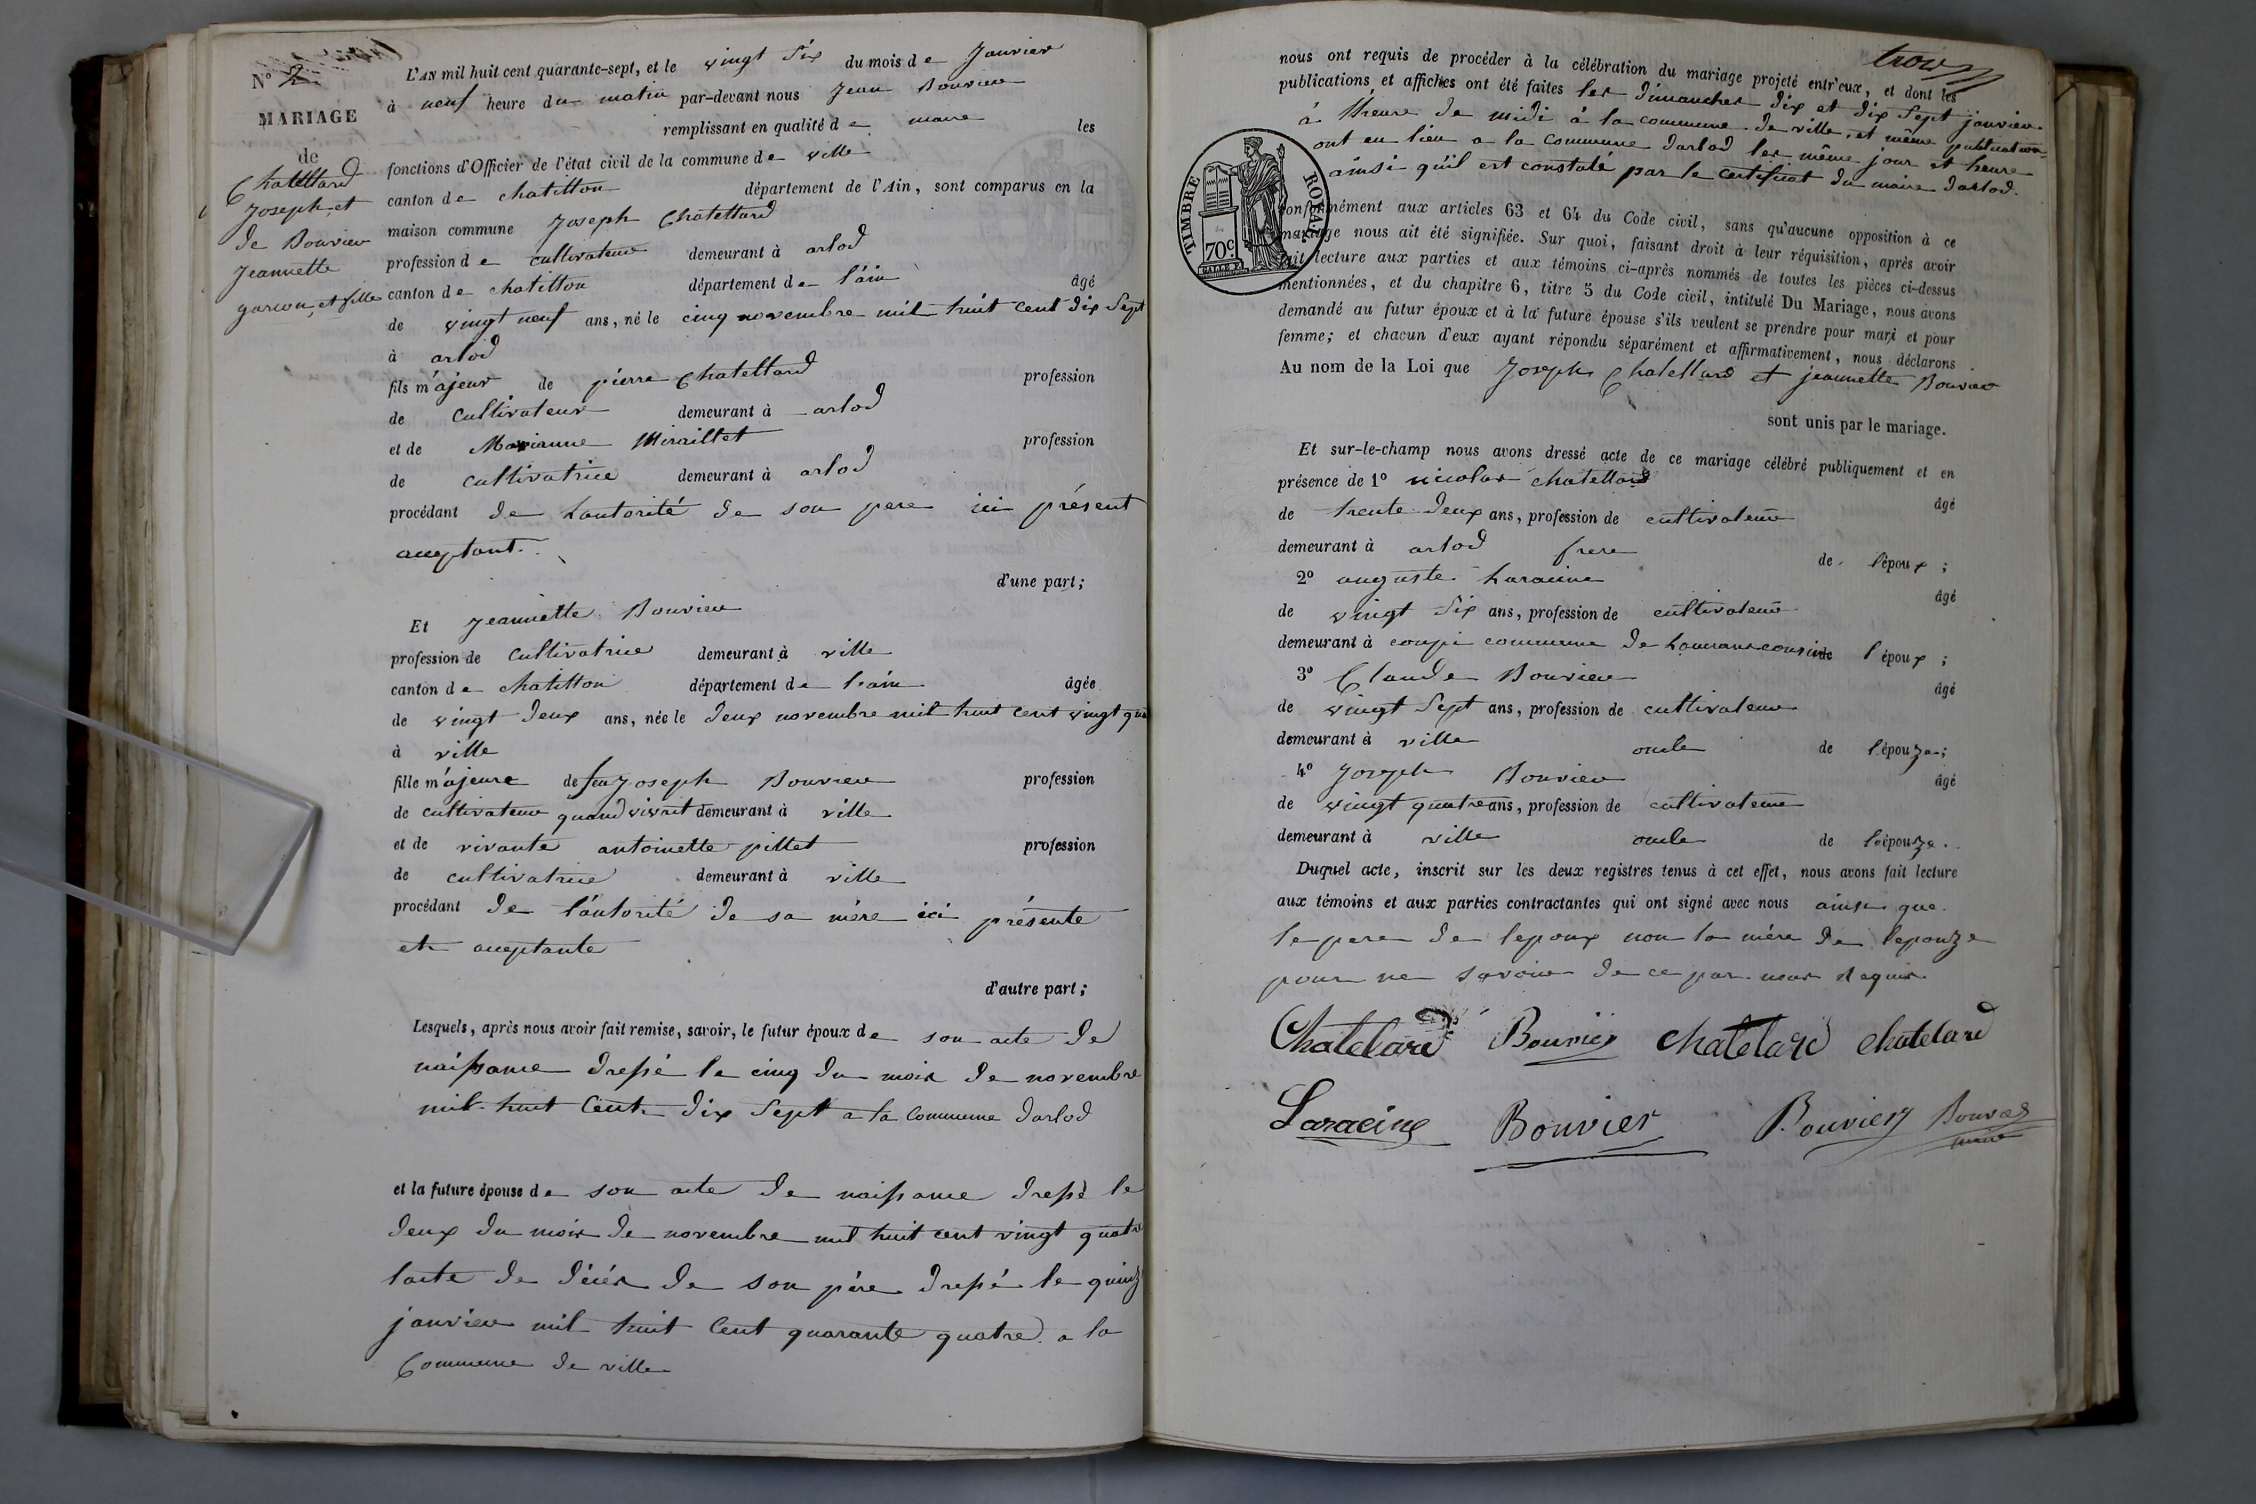 N° 2
MARIAGE
de
Chatellard
Joseph et
de Bouvier
Jeannette
garcon et fille
L'AN mil huit cent quarante-sept, et le vingt six du mois de Janvier
à neuf heure du matin par-devant nous Jean Bouvier
remplissant en qualité de maire les
fonctions d'Officier de l'état civil de la commune de ville
canton de chatillon département de l'Ain, sont comparus en la
maison commune Joseph Chatellard
profession de cultivateur demeurant à arlod
canton de chatillon département de l'ain âgé
de vingt neuf ans, né le cinq novembre mil huit cent dix sept
à arlod
fils majeur de pierre Chatellard profession
de cultivateur demeurant à arlod
et de Marianne Miraillet profession
de cultivatrice demeurant à arlod
procédant de lautorité de son pere ici présent
acceptant.
d'une part;
Et Jeannette Bouvier
profession de cultivatrice demeurant à ville
canton de chatillon département de l'ain âgée
de vingt deux ans, née le deux novembre mil huit cent vingt qua
à ville
fille majeure de feu Joseph Bouvier profession
de cultivateur quand vivait demeurant à ville
et de vivante antoinette pillet profession
de cultivatrice demeurant à ville
procédant de l'autorité de sa mère ici présente
et acceptante
d'autre part;
Lesquels, après nous avoir fait remise, savoir, le futur époux de son acte de
naissance dressé le cinq du mois de novembre
mil huit cent dix sept a la commune darlod
et la future épouse de son acte de naissance dressé le
deux du mois de novembre mil huit cent vingt quatre
lacte de décès de son père dressé le quinz
janvier mil huit cent quarante quatre a la
Commune de ville
trois
nous ont requis de procéder à la célébration du mariage projeté entr'eux, et dont les
publications et affiches ont été faites les dimanches dix et dix sept janvier
à lheure de midi à la commune de ville, et même publication
ont eu lieu a la commune darlod les même jour et heure
ainsi qu'il est constaté par le certificat du maire darlod.
TIMBRE ROYAL
70c.
conformément aux articles 63 et 64 du Code civil, sans qu'aucune opposition à ce
mariage nous ait été signifiée. Sur quoi, faisant droit à leur réquisition, après avoir
fait lecture aux parties et aux témoins ci-après nommés de toutes les pièces ci-dessus
mentionnées, et du chapitre 6, titre 5 du Code civil, intitulé Du Mariage, nous avons
demandé au futur époux et à la future épouse s'ils veulent se prendre pour mari et pour
femme; et chacun d'eux ayant répondu séparément et affirmativement, nous déclarons
Au nom de la Loi que Joseph Chatellard et jeannette Bouvier
sont unis par le mariage.
Et sur-le-champ nous avons dressé acte de ce mariage célébré publiquement et en
présence de 1° nicolas chatellard âgé
de trente deux ans, profession de cultivateur
demeurant à arlod frere de l'époux;
2° auguste Laracine âgé
de vingt six ans, profession de cultivateur
demeurant à coupi commune de cousin de l'époux;
3° Claude Bouvier âgé
de vingt sept ans, profession de cultivateur
demeurant à ville oncle de l'épouze;
4° Joseph Bouvier âgé
de vingt quatre ans, profession de cultivateur
demeurant à ville oncle de l'épouze.
Duquel acte, inscrit sur les deux registres tenus à cet effet, nous avons fait lecture
aux témoins et aux parties contractantes qui ont signé avec nous ainsi que
le pere de lepoux non la mère de lepouze
pour ne savoir de ce par nous requis.
Chatelard Bouvier Chatelard chatelard
Laracine Bouvier Bouvier Bouvier
maire